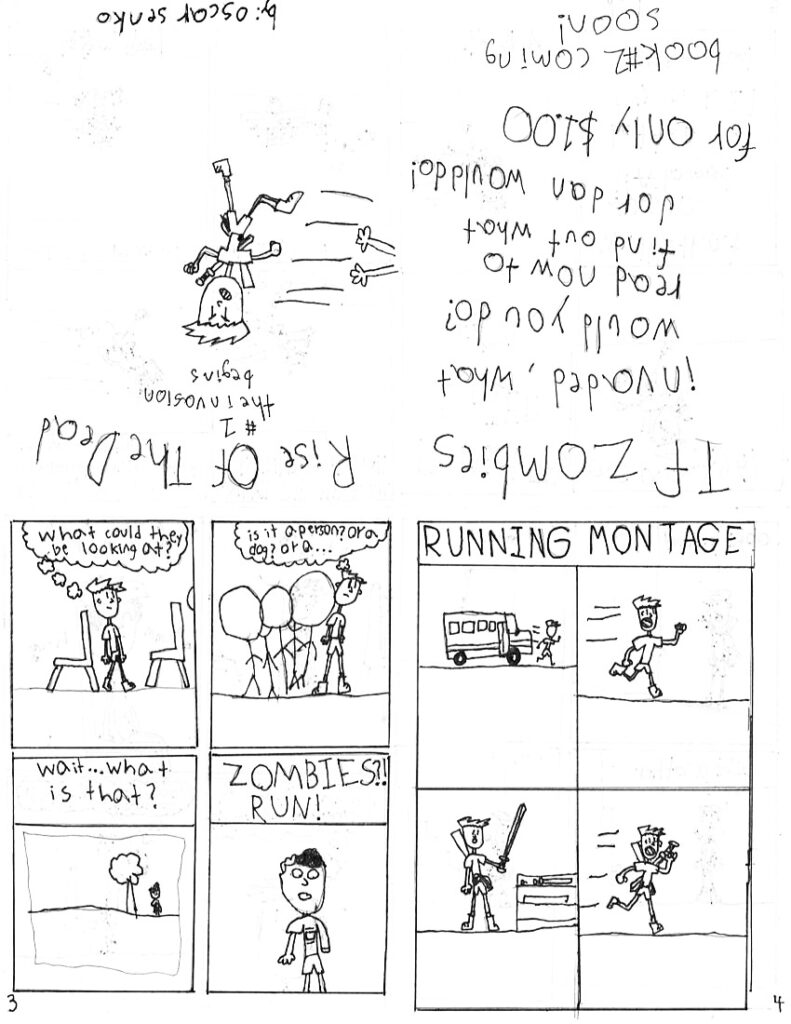 Rise Of The Dead
#1
the invasion
begins
by: oscar senko
If Zombies
invaded, what
would you do?
read now to
find out what
Jor dan would do!
for only $1.00
book #2 coming
soon!
what could they
be looking at?
is it a person? or a
dog? or a...
wait...what
is that?
ZOMBIES?!
RUN!
3
RUNNING MONTAGE
4